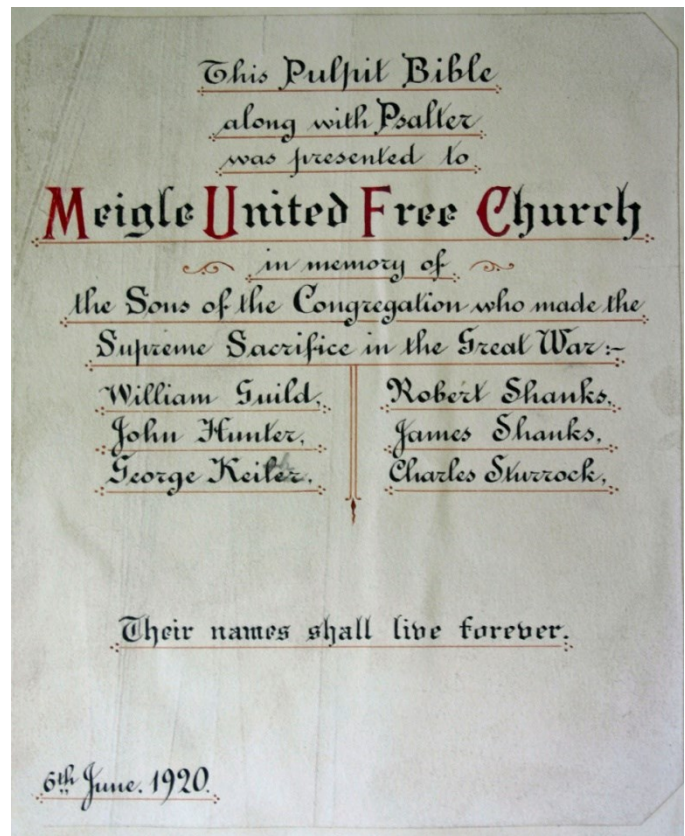 This Pulpit Bible
along with Psalter
was presented to
Meigle United Free Church
in memory of
the Sons of the Congregation who made the
Supreme Sacrifice in the Great War:-
William Guild.
John Hunter.
George
Robert Shanks.
James Shanks.
Charles Sturrock.
Their names shall live forever.
6th June. 1920.